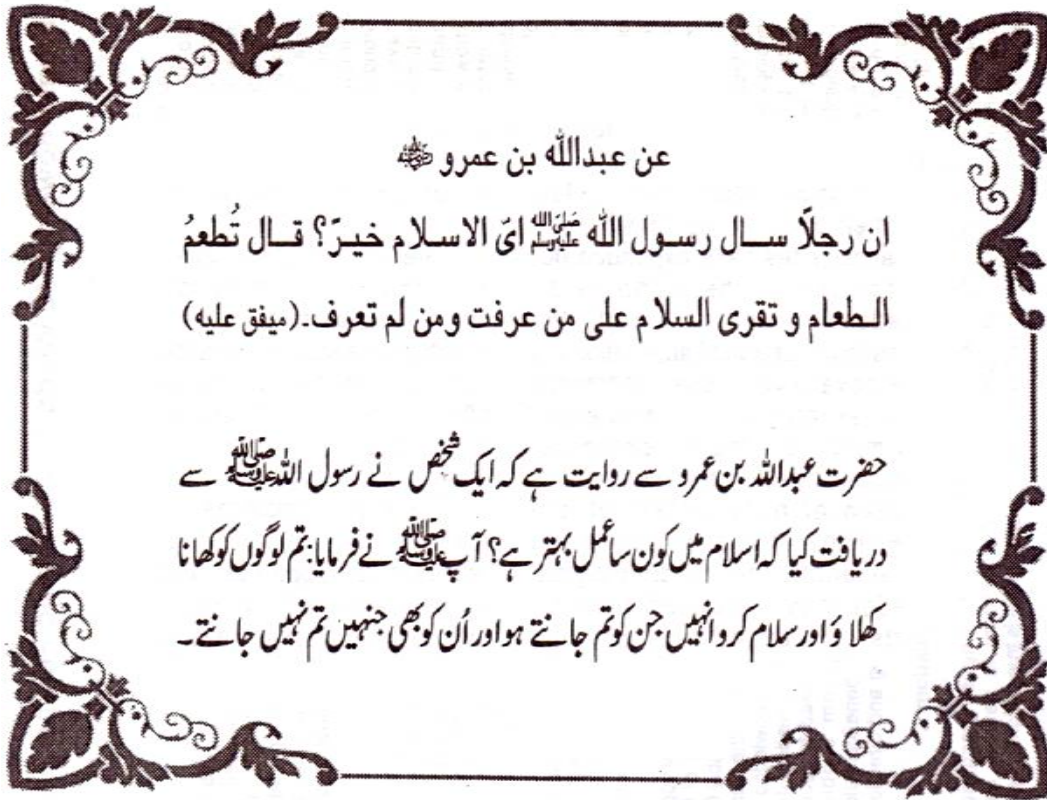 عن عبدالله بن عمرو رضی اللہ عنہ
ان رجلًا سال رسول الله ﷺ ایّ الاسلام خیرٌ؟ قال تُطعمُ
الطعام و تقری السلام علی من عرفت ومن لم تعرف۔(میفق علیه)
حضرت عبداللہ بن عمرو سے روایت ہے کہ ایک شخص نے رسول اللہ ﷺ سے
دریافت کیا کہ اسلام میں کون سا عمل بہتر ہے؟ آپ ﷺ نے فرمایا: تم لوگوں کو کھانا
کھلاؤ اور سلام کرو انہیں جن کو تم جانتے ہو اور اُن کو بھی جنہیں تم نہیں جانتے۔